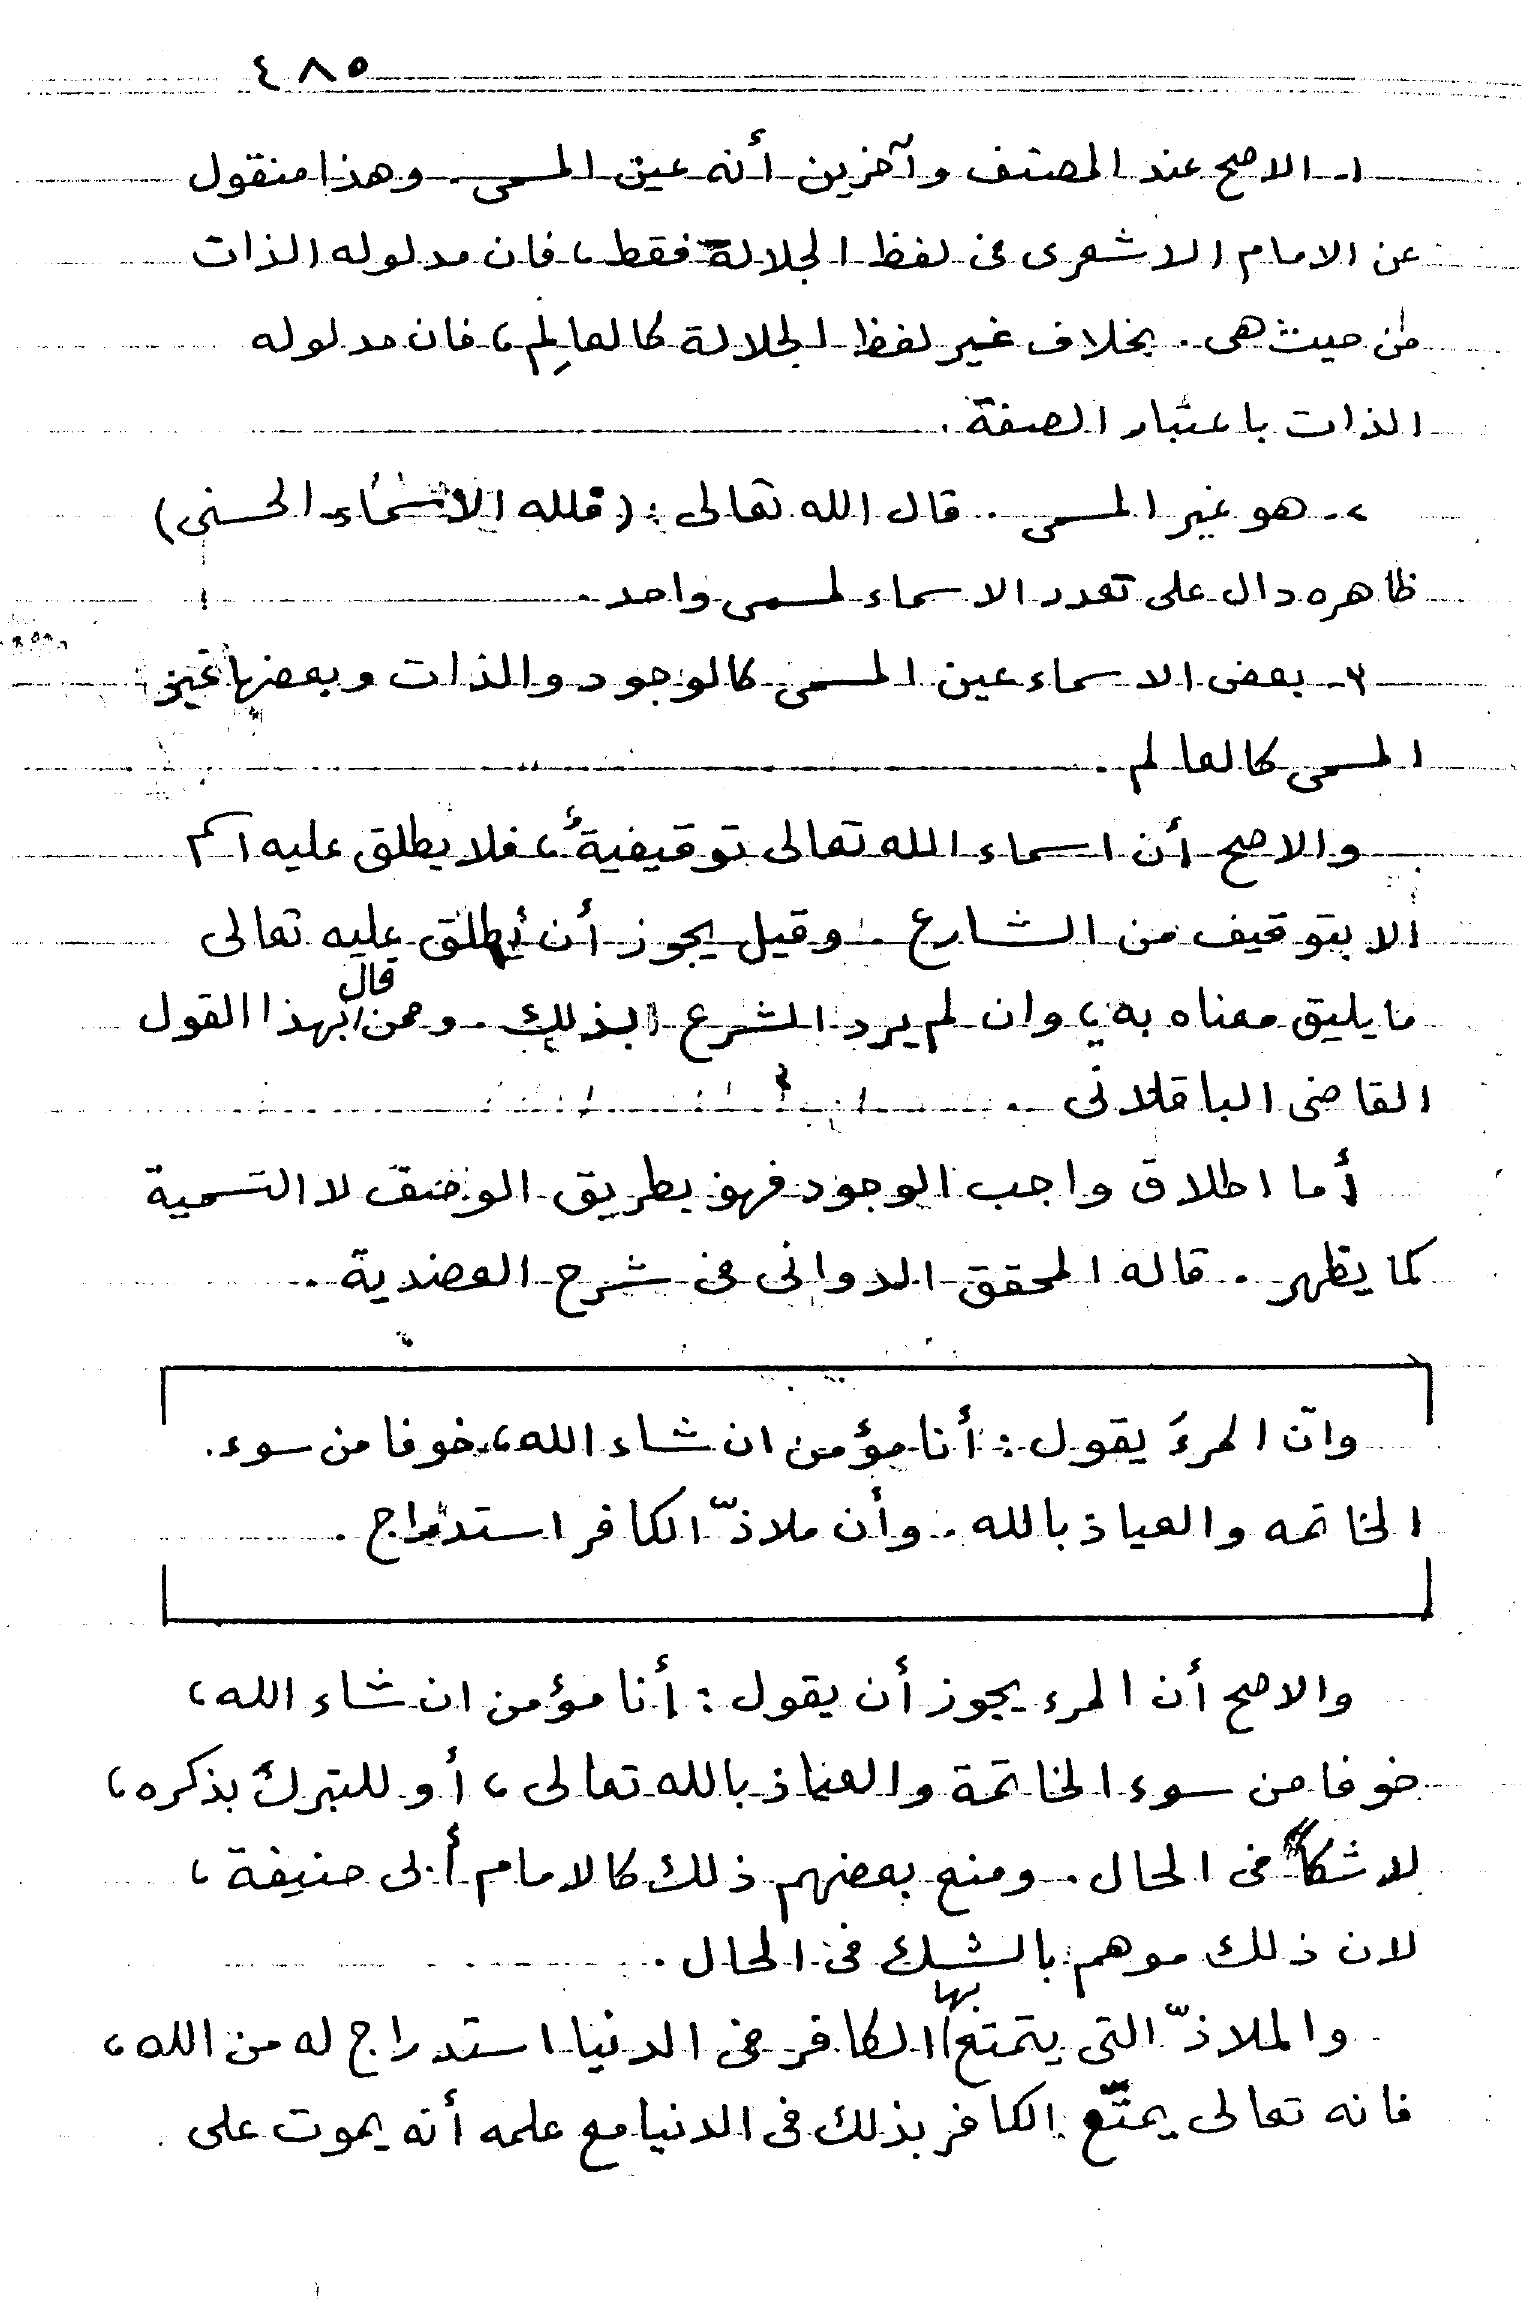 ٤٨٥
١- الاصح عند المصنف وآخرين أنه عين المسمى . وهذا منقول
عن الامام الاشعرى فى لفظ الجلالة فقط ، فان مدلوله الذات
من حيث هى . بخلاف غير لفظ الجلالة كالعالِم ، فان مدلوله
الذات باعتبار الصفة .
٢- هو غير المسمى . قال الله تعالى : (فلله الاسماء الحسنى)
ظاهره دال على تعدد الاسماء لمسمى واحد .
٣- بعض الاسماء عين المسمى كالوجود والذات وبعضها غير
المسمى كالعالم .
والاصح أن اسماء الله تعالى توقيفية ، فلا يطلق عليه اسم
الا بتوقيف من الشارع . وقيل يجوز أن يطلق عليه تعالى
ما يليق معناه به ، وان لم يرد الشرع بذلك . وممن قال بهذا القول
القاضى الباقلانى .
أما اطلاق واجب الوجود فهو بطريق الوصف لا التسمية
كما يظهر . قاله المحقق الدوانى فى شرح العضدية .
وانّ المرءَ يقول : أنا مؤمن ان شاء الله ، خوفا من سوء .
الخاتمه والعياذ بالله . وأن ملاذّ الكافر استدراج .
والاصح أن المرء يجوز أن يقول : أنا مؤمن ان شاء الله ،
خوفا من سوء الخاتمة والعياذ بالله تعالى ، أو للتبرك بذكره ،
لا شكا فى الحال . ومنع بعضهم ذلك كالامام أبى حنيفة ،
لان ذلك موهم بالشك فى الحال .
والملاذّ التى يتمتع بها الكافر فى الدنيا استدراج له من الله ،
فانه تعالى يمتّع الكافر بذلك فى الدنيا مع علمه أنه يموت على